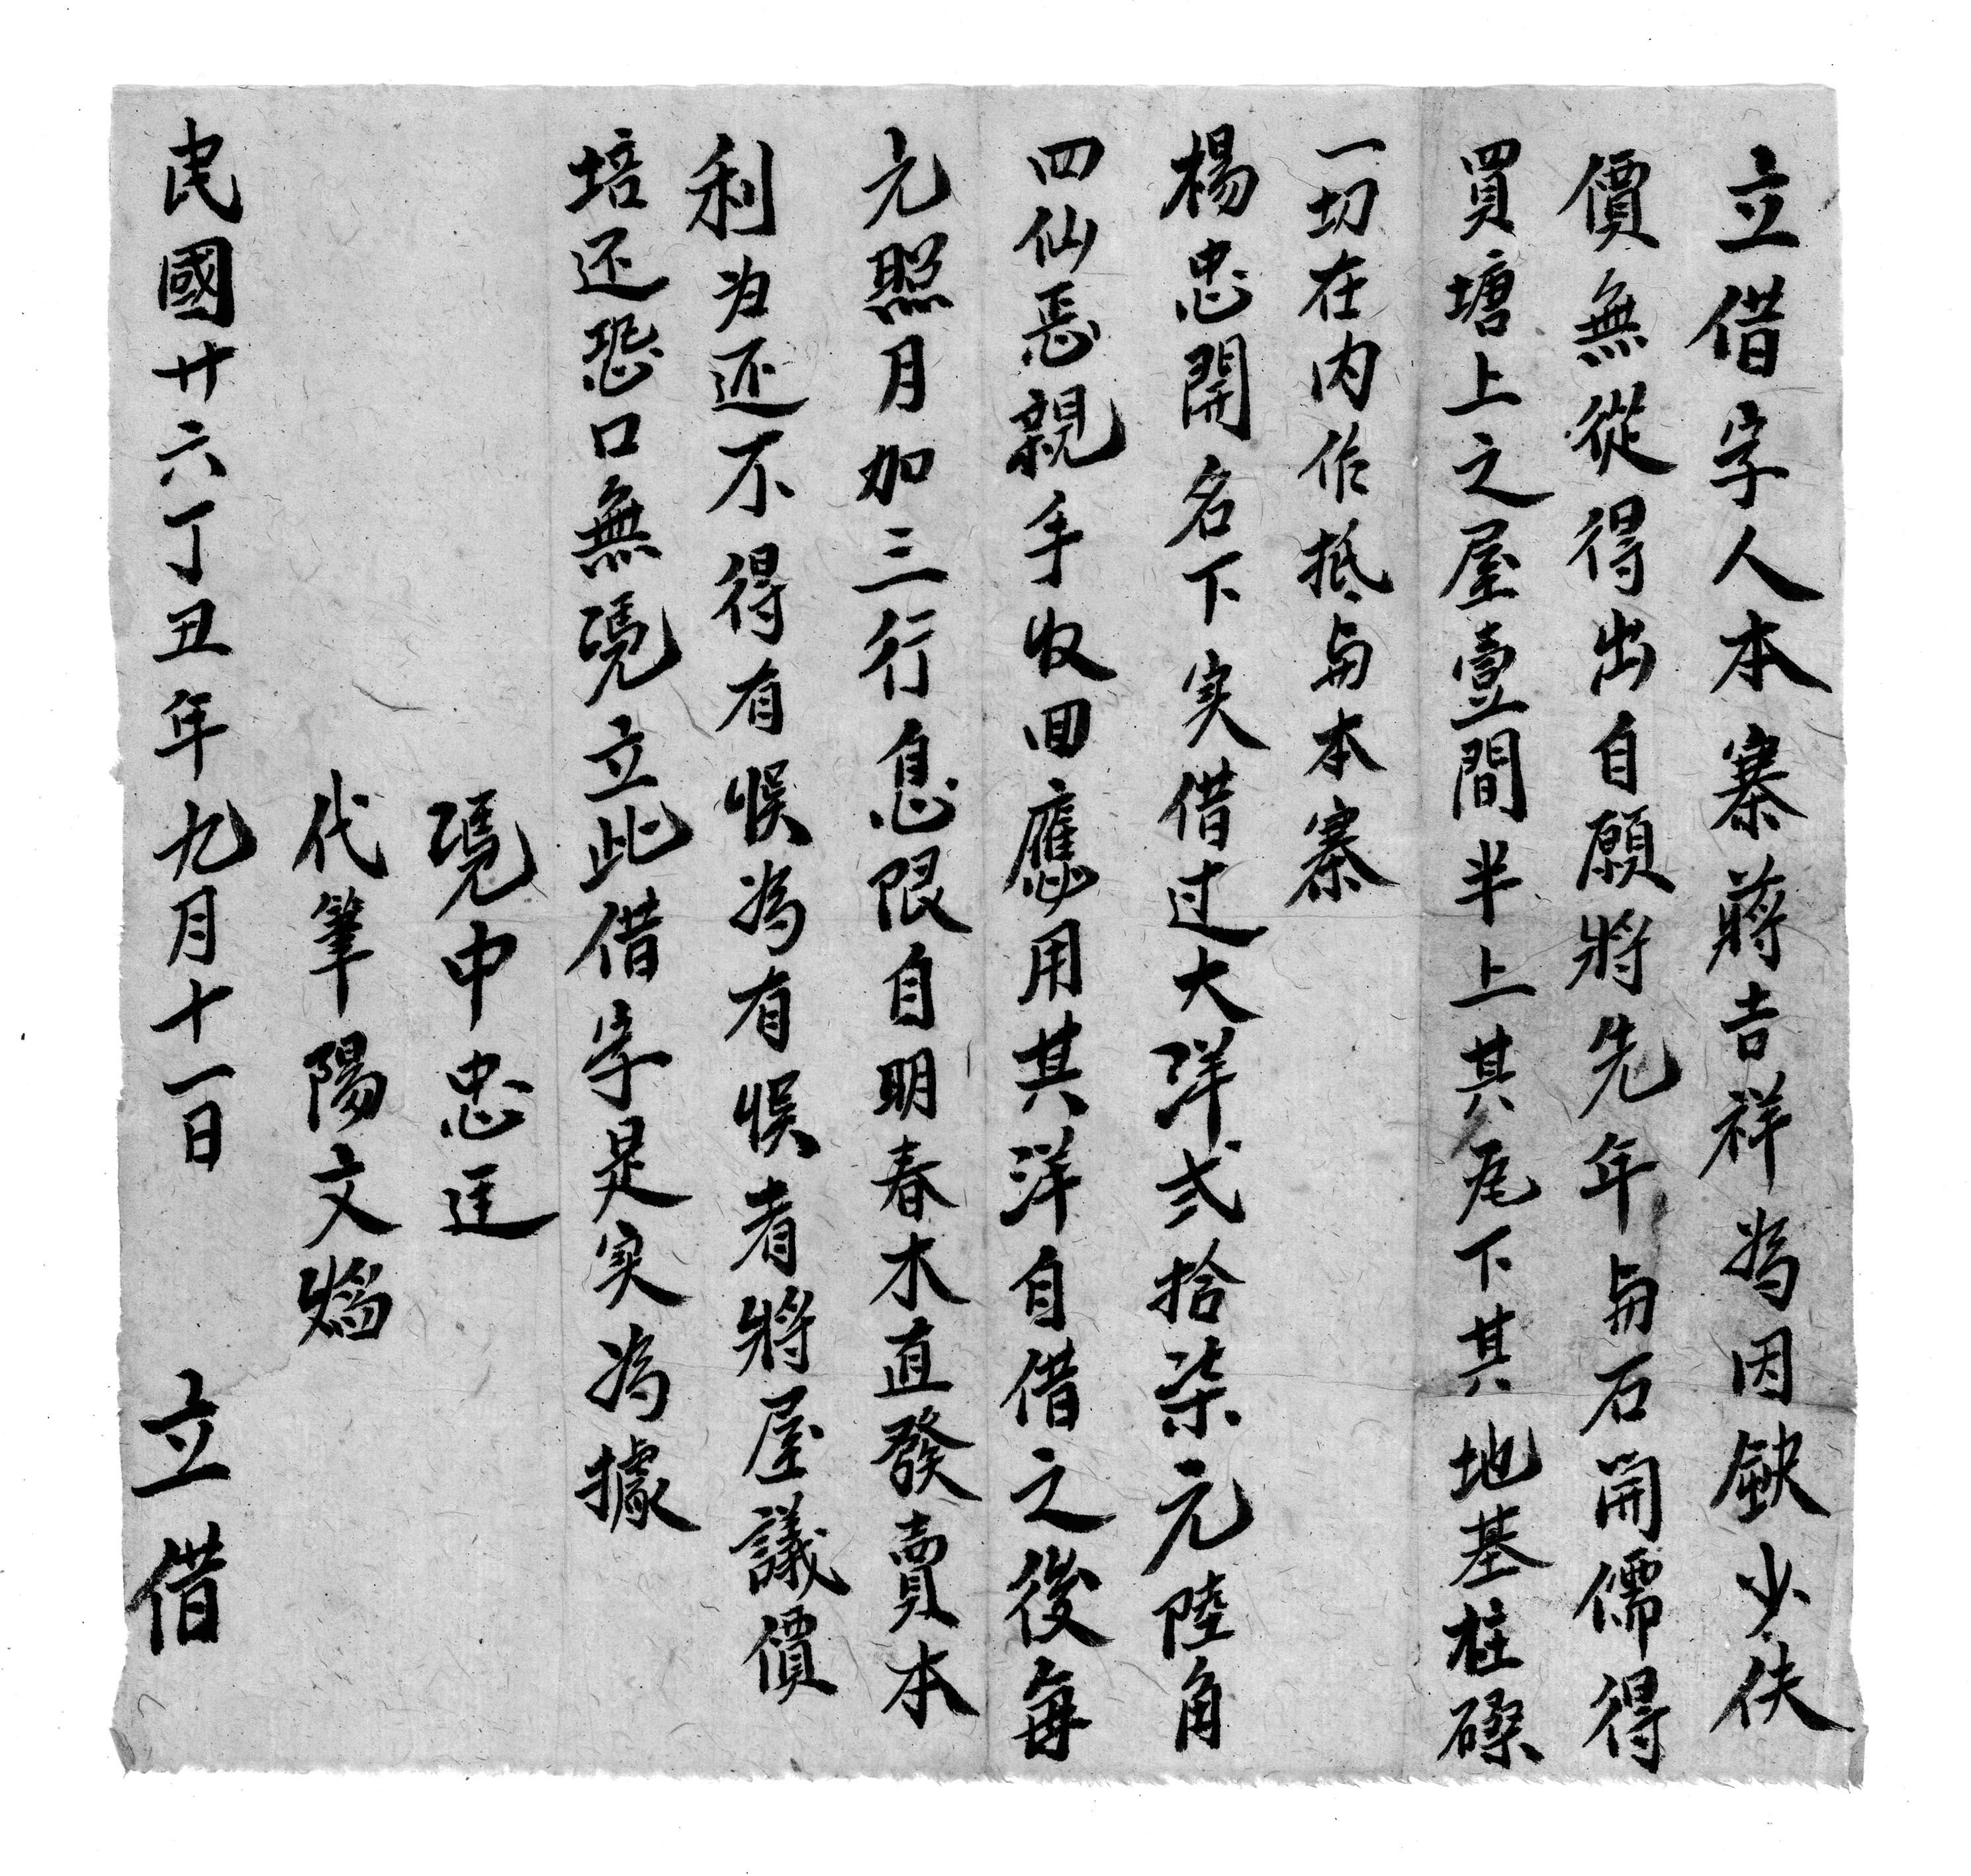 立借字人本寨蔣吉祥為因缺少伕
價無從得出自願將先年与石開儒得
買塘上之屋壹間半上其瓦下其地基柱磉
一切在内作抵与本寨
楊忠開名下实借过大洋弍拾柒元陸角
四仙忎親手收回應用其洋自借之後每
元照月加三行息限自明春木直發賣本
利为还不得有悞為有悞者將屋議價
培还恐口無凴立此借字是实為據
凴中忠匡
代筆陽文
民國廿六丁丑年九月十一日 立借